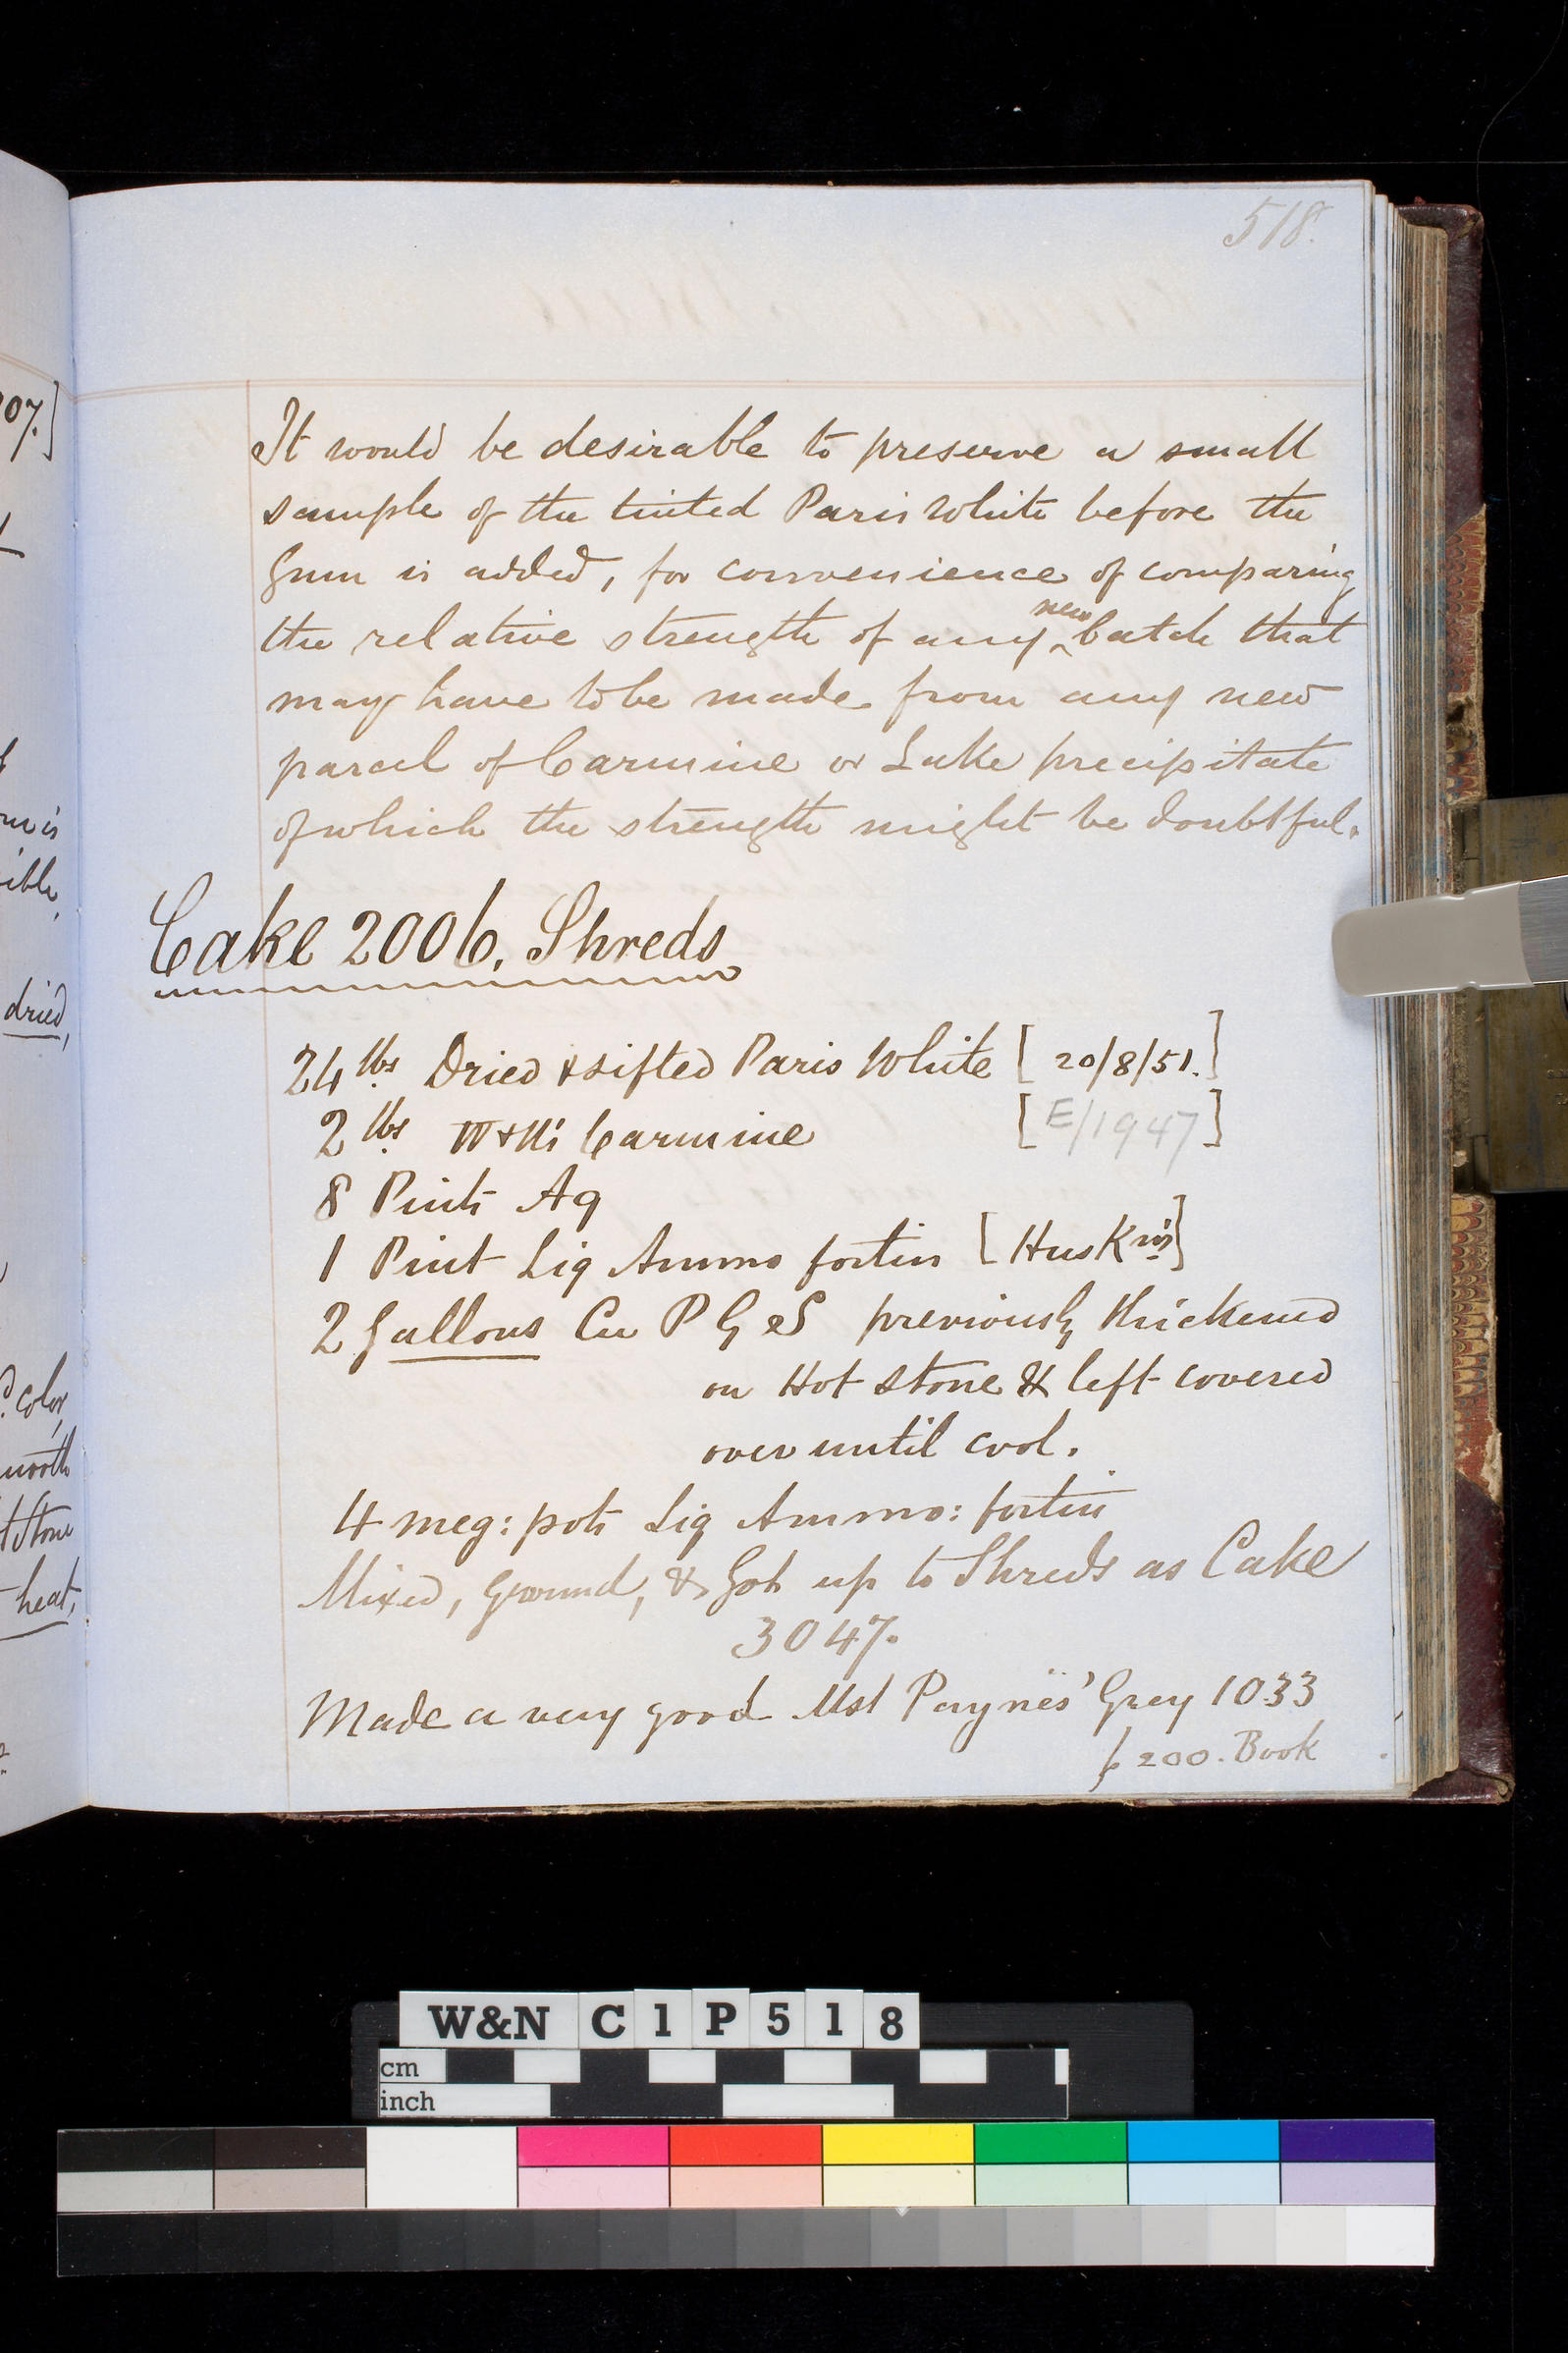 518.
07.]
It would be desirable to preserve a small
sample of the tinted Paris White before the
Gum is added, for convenience of comparing
the relative strength of any new batch that
may have to be made from any new
parcel of Carmine or Lake precipitate
of which the strength might be doubtful.
Cake 2006. Shreds
dried,
24 lbs Dried & sifted Paris White [ 20/8/51. ]
2 lbs W & N's Carmine [ E/1947 ]
8 Pints Aq
1 Pint Liq Ammo fortiss [ Huskns ]
2 Gallons Cu P G & S previously thickened
on Hot Stone & left covered
over until cool.
color
4 meg: pots Liq Ammo: fortiss
Stone
Mixed, Ground, & Got up to Shreds as Cake
heat,
3047.
Made a very good Mst Payne's Grey 1033
p 200. Book
W&N C 1 P 5 1 8
cm
inch